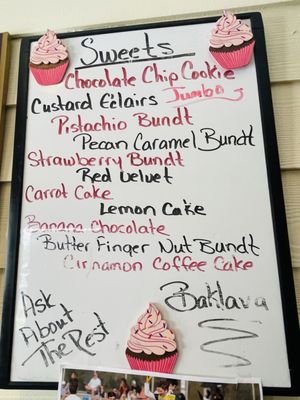 Sweets
Chocolate Chip Cookie
Custard Eclairs Jumbo
Pistachio Bundt
Pecan Caramel Bundt
Strawberry Bundt
Red Velvet
Carrot Cake
Lemon Cake
Banana Chocolate
Butter Finger Nut Bundt
Cinnamon Coffee Cake
Baklava
Ask
About
The Rest